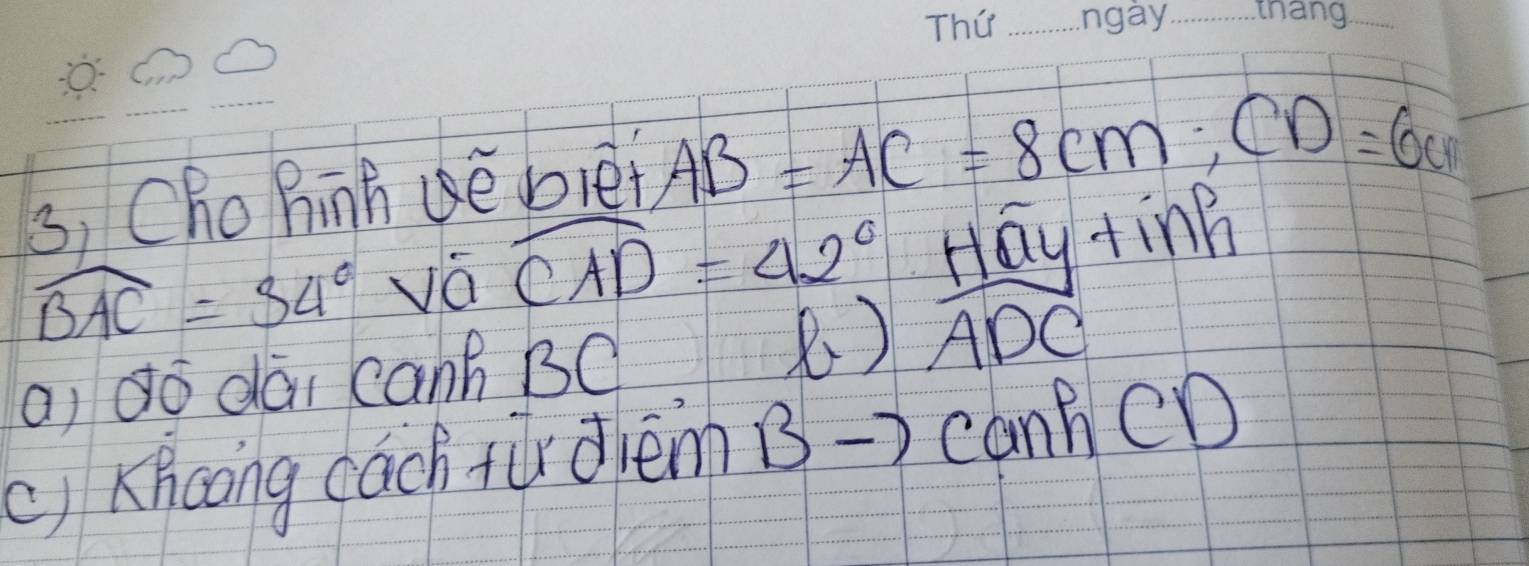 Thứ ..........ngày............tháng.......
3, Cho hình vẽ biết AB = AC = 8cm; CD = 6cm
BAC = 34° và CAD = 42° Hãy tính
a) độ dài cạnh BC b) ADC
c) Khoảng cách từ điểm B -> cạnh CD